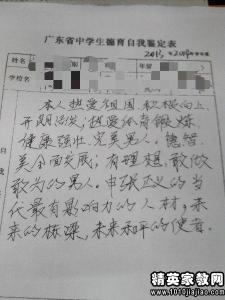 广东省中学生德育自我鉴定表
姓名
年级
学校名
本人热爱祖国 积极向上
开朗活泼，热爱体育锻炼
健康强壮，完美男人。德智
美全面发展，有理想 敢做
敢为的男人。申张正义的当
代最有影响力的人材，未
来的栋梁，未来和平的使者。
自
我
精英家教网
www.1010jiajiao.com